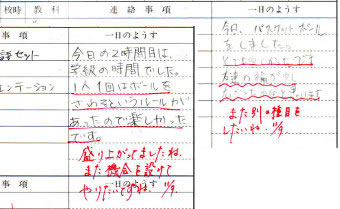 校時 教科 連絡事項
事項 一日のようす
今日の2時間目は、
学級の時間でした。
1人1回はボールを
さわるというルールが
あったので楽しかった
です。
盛り上がってましたね。
また機会を設けて
やりたいですね。
事項 一日のようす
一日のようす
今日、バスケットボール
をしました。
とても楽しかったです
また別の種目を
したいね。
事項 一日のようす